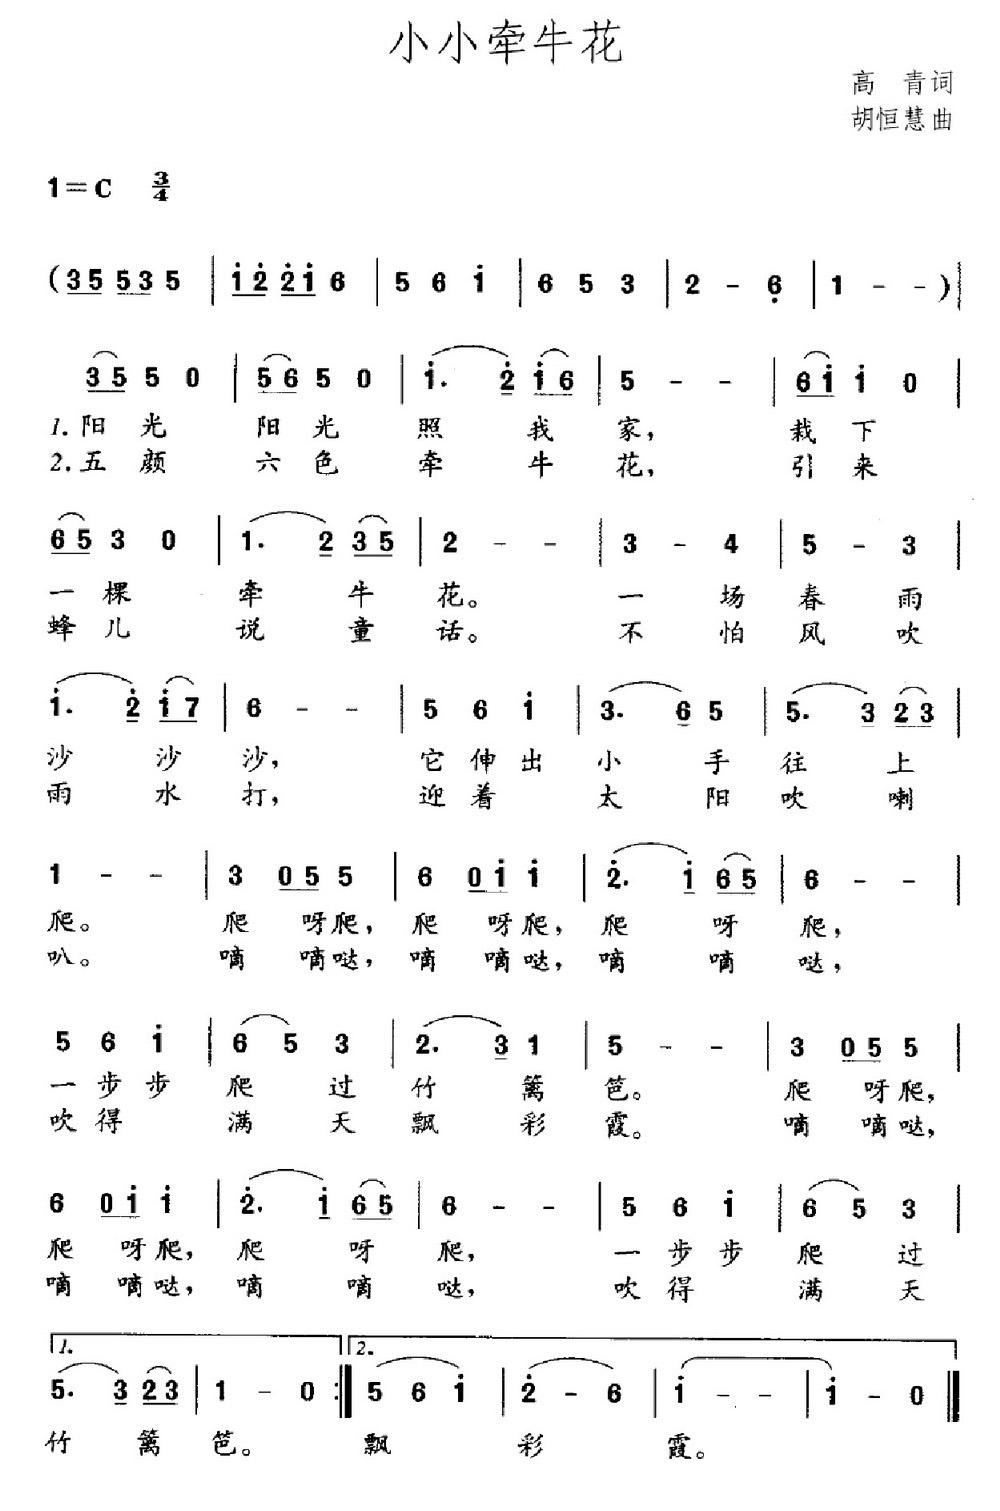 小小牵牛花
高 青词
胡恒慧曲
1=C 3/4
(35 53 5 | i̇2̇ 2̇i̇ 6 | 5 6 i̇ | 6 5 3 | 2 - 6̣ | 1 - - )
35 5 0 | 56 5 0 | i̇. 2̇ i̇6 | 5 - - | 6i̇ i̇ 0 |
1.阳光 阳光 照 我 家, 栽 下
2.五颜 六色 牵 牛 花, 引 来
65 3 0 | 1. 2 35 | 2 - - | 3 - 4 | 5 - 3 |
一棵 牵 牛 花。 一 场 春 雨
蜂儿 说 童 话。 不 怕 风 吹
i̇. 2̇ i̇7 | 6 - - | 5 6 i̇ | 3. 6 5 | 5. 3 23 |
沙 沙 沙, 它 伸 出 小 手 往 上
雨 水 打, 迎 着 太 阳 吹 喇
1 - - | 3 055 5 | 6 0i̇i̇ i̇ | 2̇. i̇ 65 | 6 - - |
爬。 爬 呀爬, 爬 呀爬, 爬 呀 爬,
叭。 嘀 嘀哒, 嘀 嘀哒, 嘀 嘀 哒,
5 6 i̇ | 6 5 3 | 2. 3 1 | 5 - - | 3 055 5 |
一步步 爬 过 竹 篱 笆。 爬 呀爬,
吹得 满 天 飘 彩 霞。 嘀 嘀哒,
6 0i̇ i̇ | 2̇. i̇ 65 | 6 - - | 5 6 i̇ | 6 5 3 |
爬 呀爬, 爬 呀 爬, 一 步 步 爬 过
嘀 嘀哒, 嘀 嘀 哒, 吹 得 满 天
1. 2.
5. 3 23 | 1 - 0 :‖ 5 6 i̇ | 2̇ - 6 | i̇ - - | i̇ - 0 ‖
竹 篱 笆。 飘 彩 霞。